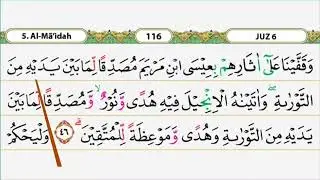 5. Al-Mā'idah 116 JUZ 6
وَقَفَّيْنَا عَلٰٓى اٰثَارِهِمْ بِعِيْسَى ابْنِ مَرْيَمَ مُصَدِّقًا لِّمَا بَيْنَ يَدَيْهِ مِنَ
التَّوْرٰىةِ ۖ وَاٰتَيْنٰهُ الْاِنْجِيْلَ فِيْهِ هُدًى وَّنُوْرٌۙ وَّمُصَدِّقًا لِّمَا بَيْنَ
يَدَيْهِ مِنَ التَّوْرٰىةِ وَهُدًى وَّمَوْعِظَةً لِّلْمُتَّقِيْنَۗ ٤٦ وَلْيَحْكُمْ